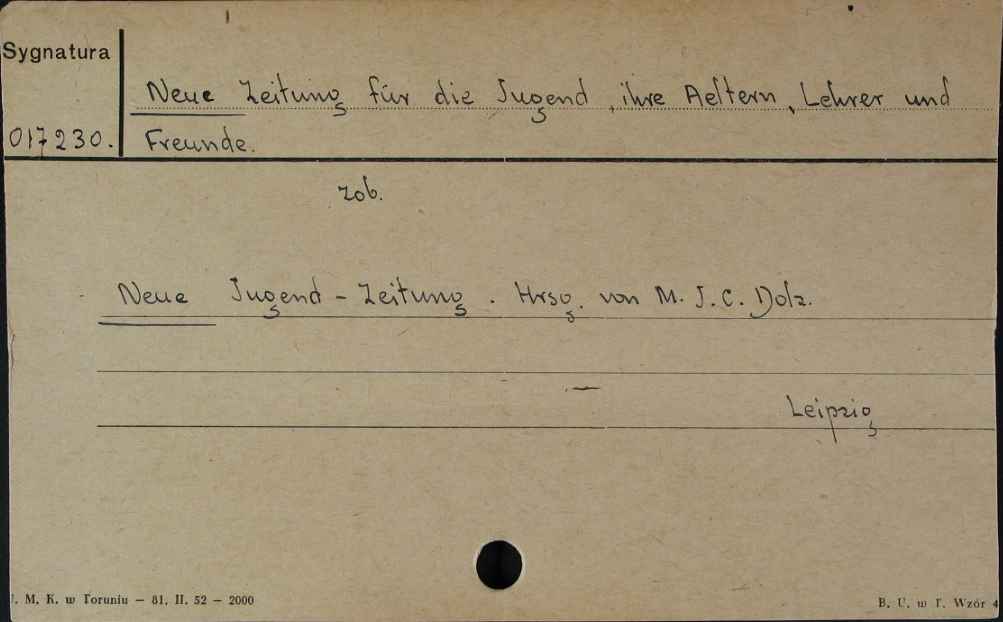 Sygnatura
Neue Zeitung für die Jugend, ihre Aeltern, Lehrer und
017230. Freunde.
zob.
Neue Jugend-Zeitung. Hrsg. von M. J. C. Dolz.
Leipzig
M. K. w Toruniu — 81. II. 52 — 2000
B. U. w T. Wzór 4